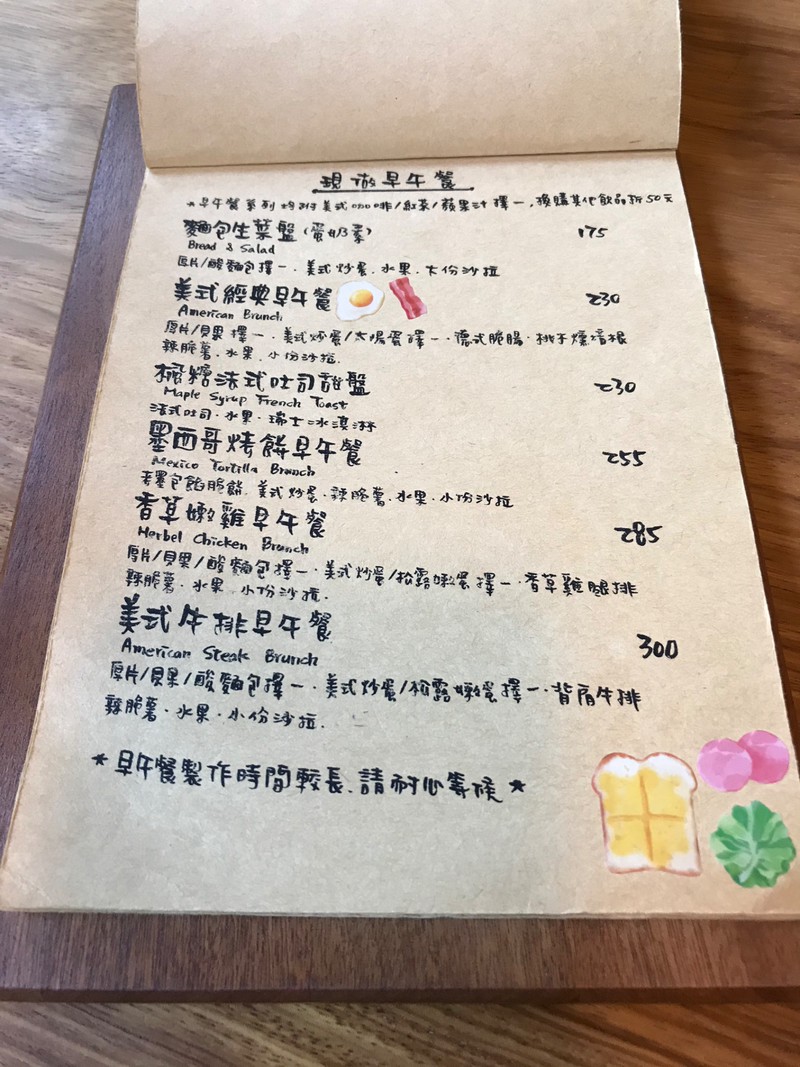 現做早午餐
*早午餐系列均附美式咖啡/紅茶/蘋果汁擇一,換購其他飲品折50元
麵包生菜盤(蛋奶素) 175
Bread & Salad
厚片/酸麵包擇一.美式炒蛋.水果.大份沙拉
美式經典早午餐 230
American Brunch
厚片/貝果擇一.美式炒蛋/太陽蛋擇一.德式脆腸.桃子燻培根
辣脆薯.水果.小份沙拉.
楓糖法式吐司甜盤 230
Maple Syrup French Toast
法式吐司.水果.瑞士冰淇淋
墨西哥烤餅早午餐 255
Mexico Tortilla Brunch
脆餅.美式炒蛋.辣脆薯.水果.小份沙拉
香草嫩雞早午餐 285
Herbel Chicken Brunch
厚片/貝果/酸麵包擇一.美式炒蛋/松露嫩蛋擇一.香草雞腿排
辣脆薯.水果.小份沙拉.
美式牛排早午餐 300
American Steak Brunch
厚片/貝果/酸麵包擇一.美式炒蛋/松露嫩蛋擇一.背肩牛排
辣脆薯.水果.小份沙拉.
*早午餐製作時間較長.請耐心等候*